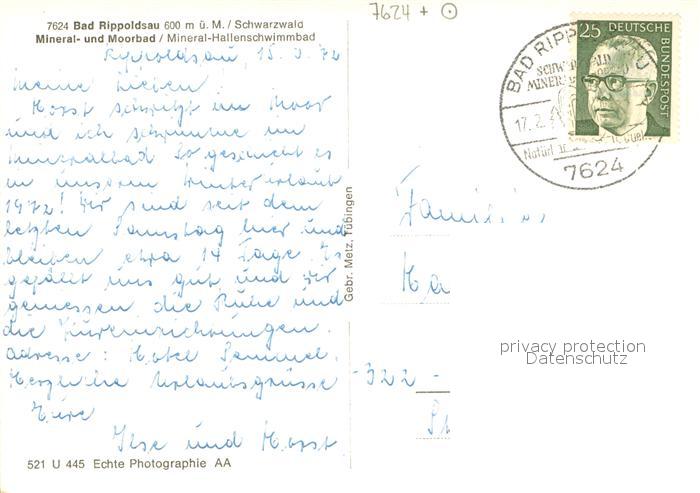 7624 + ⊙
7624 Bad Rippoldsau 600 m ü. M. / Schwarzwald
Mineral- und Moorbad / Mineral-Hallenschwimmbad
Rippoldsau, 15. 2. 72
Meine Lieben.
Horst schwitzt im Moor
und ich schwimme im
Mineralbad So geschieht es
in unserm Winterurlaub
1972! Wir sind seit dem
letzten Samstag hier und
bleiben etwa 14 Tage. Es
gefällt uns gut und wir
geniessen die Ruhe und
die Kureinrichtungen.
Adresse: Hotel Sommer.
Herzliche Urlaubsgrüsse
Eure
Ilse und Horst
521 U 445 Echte Photographie AA
Gebr. Metz, Tübingen
25 DEUTSCHE BUNDESPOST
BAD RIPP
MINER
17.2.
7624
Familie
Ha
322
privacy protection
Datenschutz